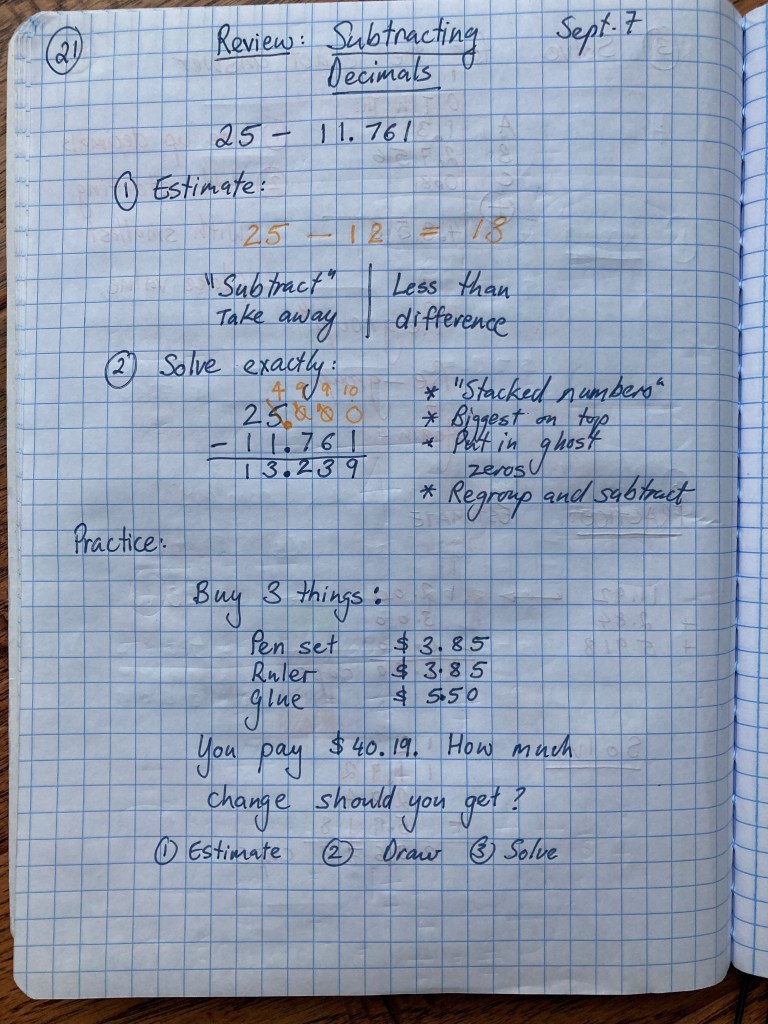 21
Review: Subtracting Sept. 7
Decimals
25 - 11.761
① Estimate:
25 - 12 = 18
"Subtract" | Less than
Take away | difference
② Solve exactly:
4 9 9 10
25.000
- 11.761
13.239
* "Stacked numbers"
* Biggest on top
* Put in ghost
zeros
* Regroup and subtract
Practice:
Buy 3 things:
Pen set $3.85
Ruler $3.85
glue $5.50
You pay $40.19. How much
change should you get?
① Estimate ② Draw ③ Solve